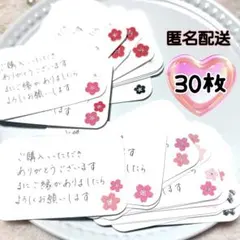 匿名配送
30枚
ご購入いただき
ありがとうございます
またご縁がありましたら
よろしくお願いします
ご購入いただき
ありがとうございます
またご縁がありましたら
よろしくお願いします